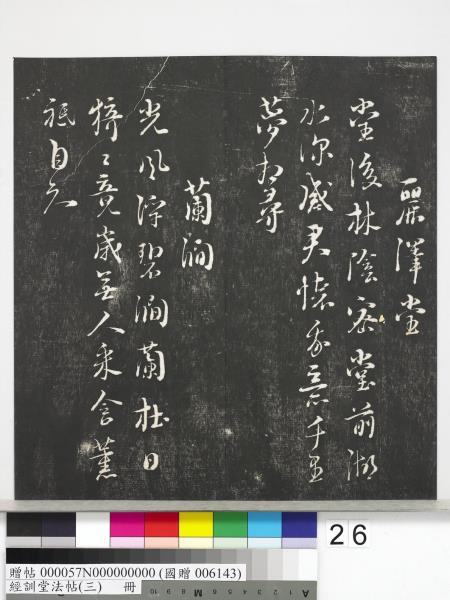 麗澤堂
堂後林陰密堂前湖
水深感君懷我意千里
夢相尋
蘭澗
光風浮碧澗蘭杜日
猗〻竟歲無人采含薰
祗自知
26
贈帖 000057N000000000 (國贈 006143)
經訓堂法帖(三) 冊